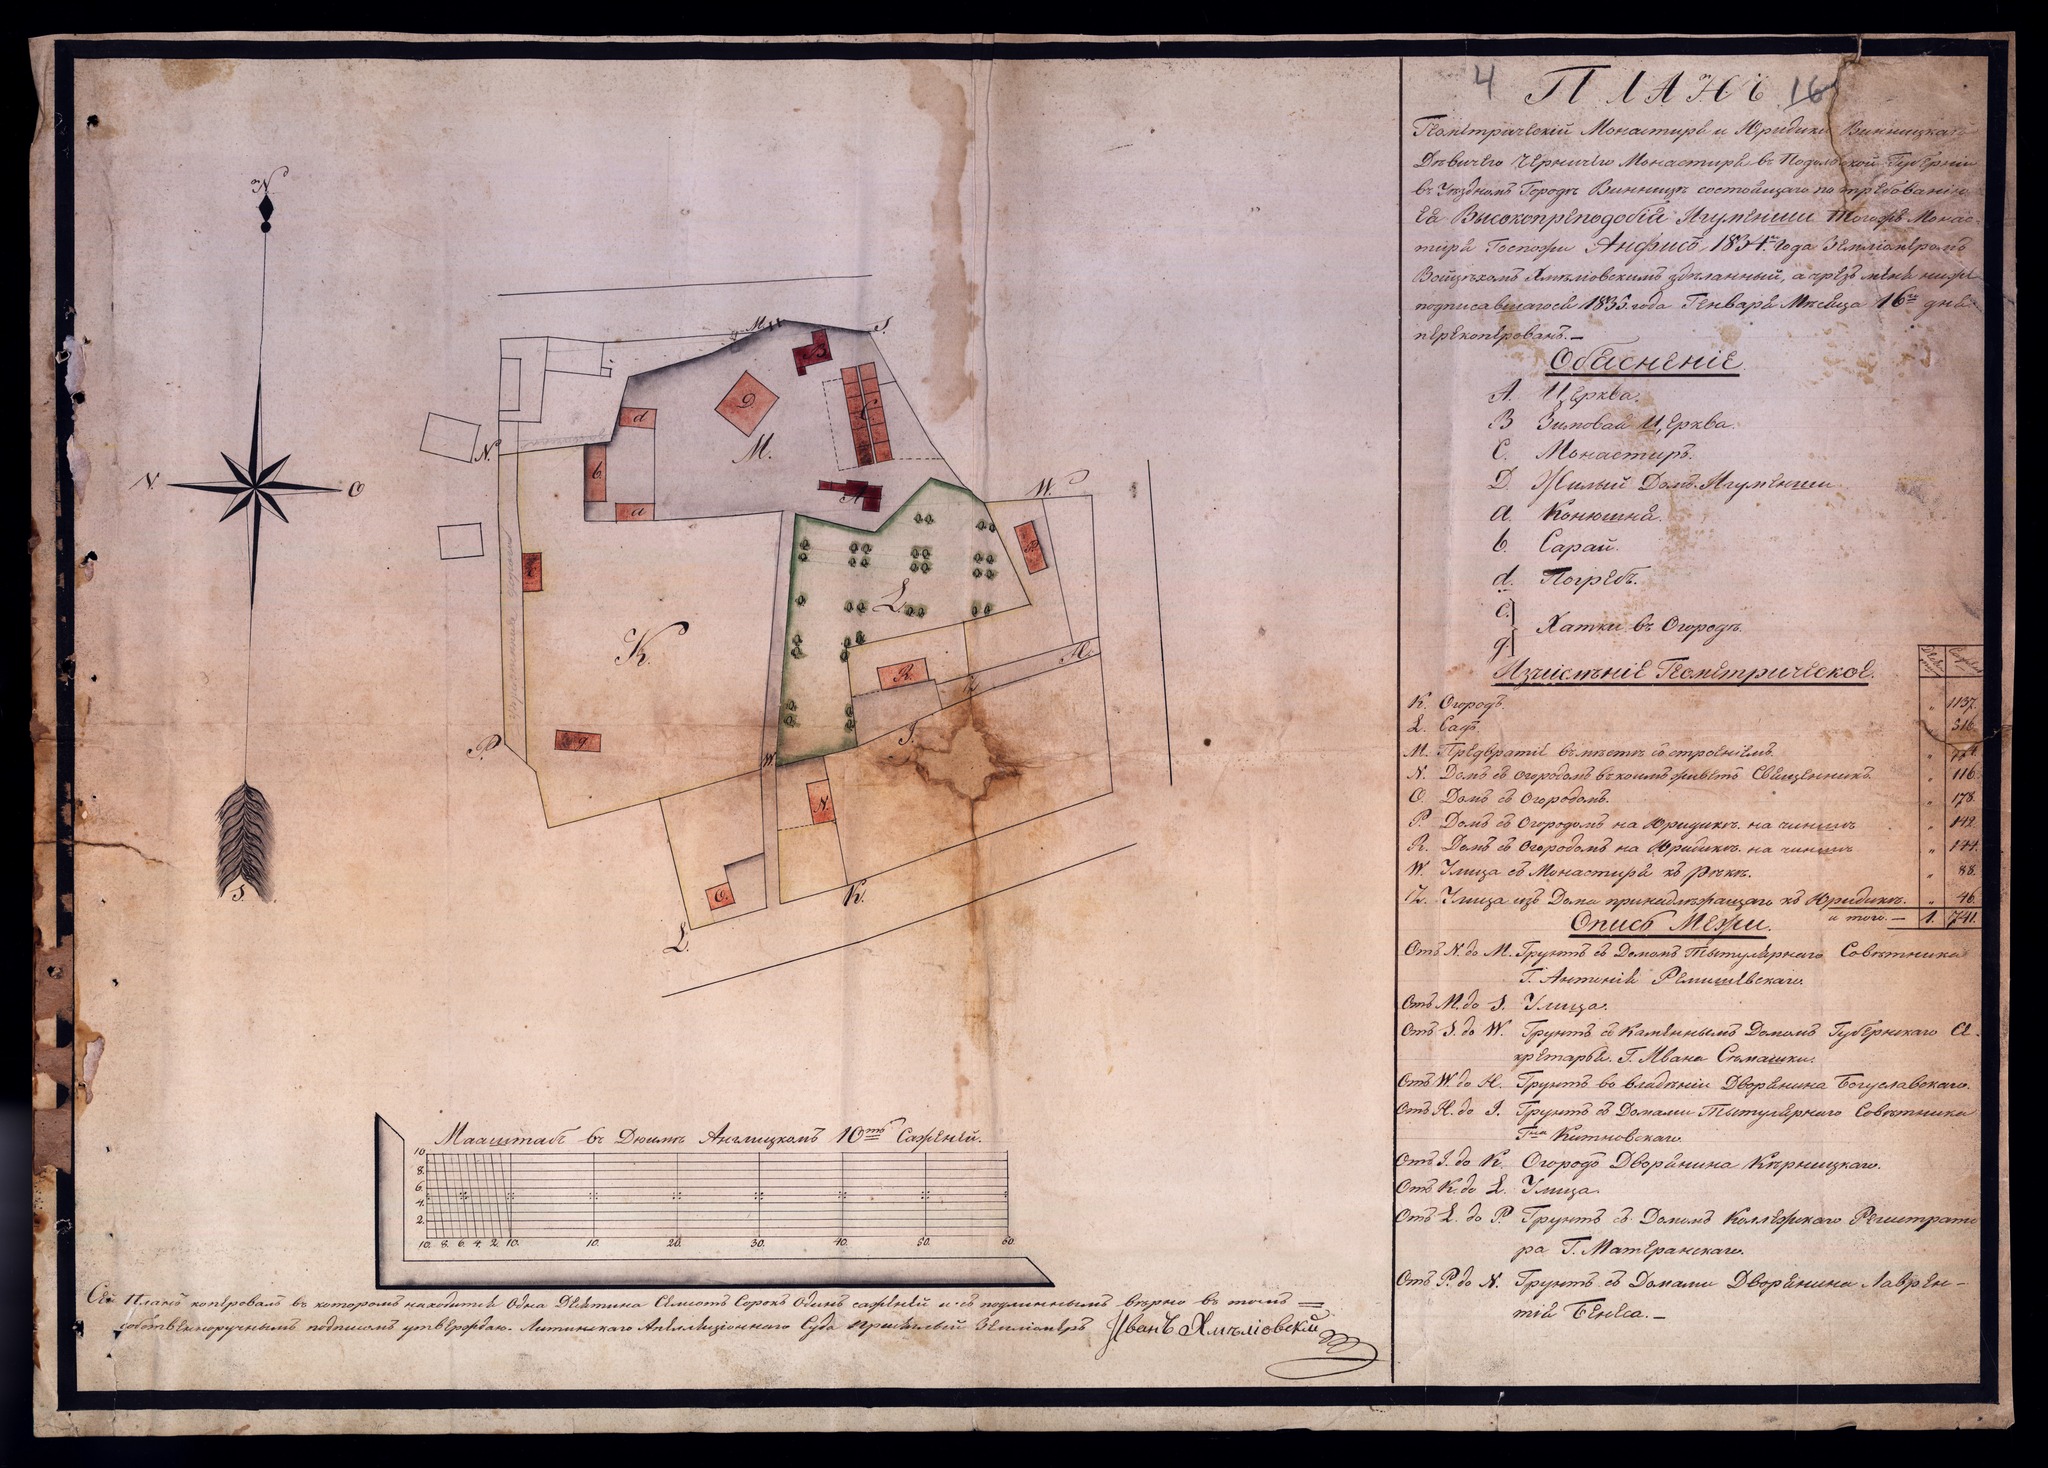 4 ПЛАНЪ 16
Геометрическій Монастиря и Юридики Винницкаго
Дѣвичего Черничего Монастиря въ Подольской Губерніи
въ Уѣздномъ Городѣ Винницѣ состоящаго по требованію
Ея Высокопреподобія Игуменши Тогожъ Монас-
тиря Госпожи Анфисъ 1834го года Землюмеромъ
здѣланный, а чрезъ меня ниже
подписавшагося 1835 года Генваря Мѣсяца 16го дня
перекопѣрованъ.
Обясненіе
A. Церква.
B Зимовая Церква.
C. Монастиръ.
D. Жилый Домъ Игуменши
a. Конюшня.
b. Сарай.
d. Погребъ.
c.
g. } Хатки въ Огородѣ.
Изчисленіе Геометрическое.
K. Огородъ. " 1137.
L. Садъ. " 316.
M. Предвратіе вместѣ съ строеніемъ. "
N. Домъ съ огородомъ въ коимъ живетъ Священникъ " 116.
O. Домъ съ Огородомъ. " 178.
P. Домъ съ Огородомъ на Юридикѣ на чиншѣ " 142.
R. Домъ съ Огородомъ на Юридикѣ на чиншѣ " 144.
W. Улица съ Монастиря къ рѣкѣ. " 88.
Z. Улица изъ Дома принадлежащаго къ Юридикѣ. " 46.
и того.— 1. 741.
Опись Межи.
Отъ N. до M. Грунтъ съ Домомъ Тытулярного Совѣтника
Г. Антонія
Отъ M. до S. Улица.
Отъ S. до W. Грунтъ съ Каменнымъ Домомъ Губернскаго Се-
кретаря Г. Ивана Сѣмашки.
Отъ W. до H. Грунтъ во владѣніи Дворянина Богуславскаго.
Отъ H. до I. Грунтъ съ Домами Тытулярного Совѣтника
Гна Китновскаго
Отъ I. до K. Огородъ Дворянина Кѣрницкаго.
Отъ K. до L. Улица.
Отъ L. до P. Грунтъ съ Домомъ Коллежскаго Регистрато
ра Г. Матеранскаго.
Отъ P. до N. Грунтъ съ Домами Дворянина Лаврен-
тія Бенса.—
N
N. O
S.
M. S.
B
D C
d
M.
N.
b
a A
W.
P.
c
L.
K.
H.
R. Z
g
P. I.
W
N.
O.
K.
L.
Мааштабъ въ Дюимѣ Англицкомъ 10ть Саженей.
10
8.
6.
4.
2.
10. 8. 6. 4. 2. 10. 10. 20. 30. 40. 50. 60.
Сей Планъ копѣровалъ въ которомъ находится Одна Десятина Семсотъ Сорокъ Одинъ саженей и съ подлиннымъ вѣрно въ томъ
собственноручнымъ подписомъ утверждаю. Литинскаго Апелляціонного Суда Присяжлый Землюмеръ Иванъ